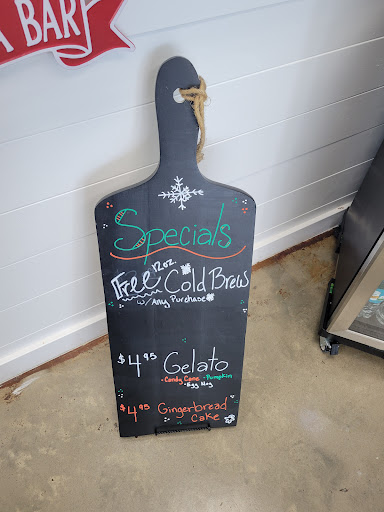 A BAR
Specials
Free 12oz. Cold Brew
w/ Any Purchase
$4.95 Gelato
• Candy Cane • Pumpkin
• Egg Nog
$4.95 Gingerbread
Cake